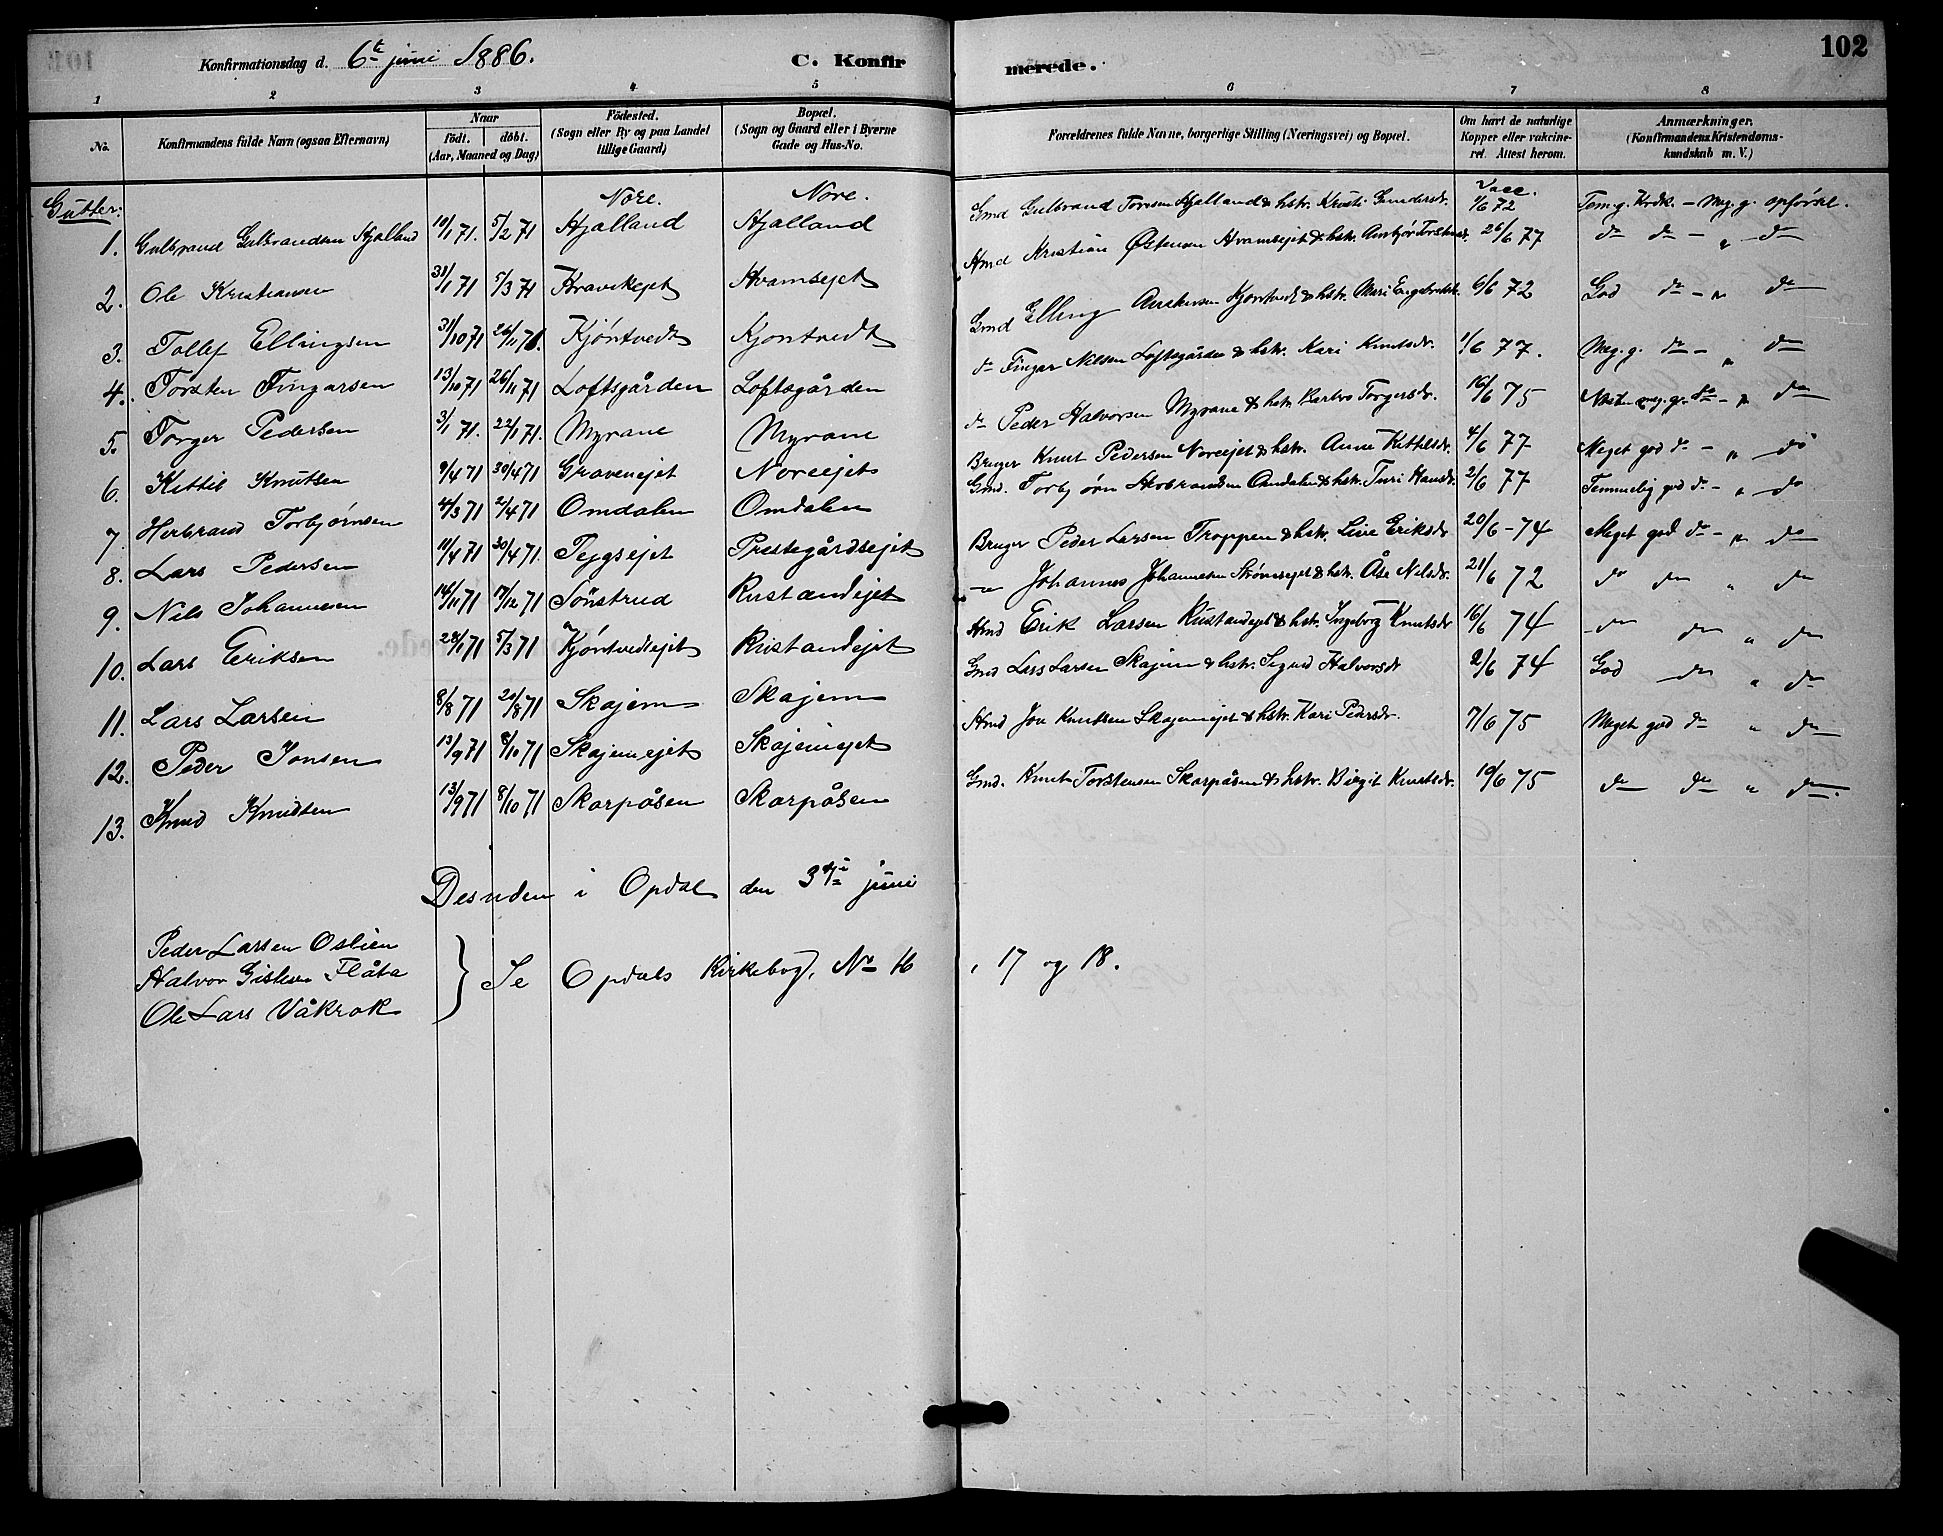 Konfirmationsdag d. 6te juni 1886. C. Konfirmerede. 102
1 2 3 4 5 6 7 8
No. Konfirmandens fulde Navn (ogsaa Efternavn) Naar födt. döbt. (Aar, Maaned og Dag) Födested. (Sogn eller By og paa Landet tillige Gaard) Bopæl. (Sogn og Gaard eller i Byerne Gade og Hus-No. Forældrenes fulde Navne, borgerlige Stilling (Næringsvei) og Bopæl. Om havt de naturlige Kopper eller vakcineret. Attest herom. Anmærkninger. (Konfirmandens Kristendomskundskab m. V.)
Gutter: Nore. Nore. Vacc.
1. Gulbrand Gulbrandsen Hjalland 10/1 71. 5/2 71 Hjalland Hjalland Gmd Gulbrand Toresen Hjalland & hstr. Kristi Gundersdr. 1/6 72 Tem. g. Krdk. – Meg. g. opførsel.
2. Ole Kristiansen 31/1 71 5/3 71 Kravikejet Hvamsejet Hmd Kristian Østensen Hvamsejet & hstr. Torstensd. 26/6 77 do do – " do
3. Tollef Ellingsen 31/10 71 26/11 71. Kjöntvedt Kjöntvedt Gmd Elling Kjöntvedt & hstr. Mari Engebretsd. 6/6 72 God do – " do
4. Torsten Fingarsen 13/10 71 26/11 71 Loftsgården Loftsgården do Fingar Nilsen Loftsgården & hstr. Kari Knutsdr. 1/6 77. Meg. g. do – " do
5. Torger Pedersen 3/1 71. 22/1 71. Myrane Myrane do Peder Halvorsen Myrane & hstr. Barbro Torgersdr. 16/6 75 meg. g. do – " do
6. Kittil Knutsen 9/4 71 30/4 71 Gravenejet Noreejet Bruger Knut Pedersen Noreejet & hstr. Anne Kittilsdr. 4/6 77 Meget god do – " do
7. Herbrand Torbjørnsen 4/3 71 2/4 71 Omdalen Omdalen Gmd. Torbjørn Herbrandsen Omdalen & hstr. Turi Hansdr. 2/6 77 Temmelig god do – " do
8. Lars Pedersen 11/4 71 30/4 71. Tejgsejet Prestegårdsejet Bruger Peder Larsen Troppen & hstr. Live Eriksdr 20/6 – 74 Meget god do – " do
9. Nils Johannesen 16/11 71 17/12 71 Sönstrud Rustandejet –"– Johannes Johannesen Strömsejet & hstr. Åse Nilsdr. 21/6 72 do do " do
10. Lars Eriksen 28/1 71 5/3 71 Kjöntvedtejet Rustandejet Hmd Erik Larsen Rustandejet & hstr. Ingeborg Knutsdr 16/6 74 do do " do
11. Lars Larsen 8/8 71 20/8 71 Skajem Skajem Gmd Lars Larsen Skajem & hstr. Sigrid Halvorsdr 2/6 74 God do " do
12. Peder Jonsen 13/9 71 8/10 71 Skajemejet Skajemejet Hmd Jon Knutsen Skajemejet & hstr. Kari Pedersdr. 7/6 75 Meget god do " do
13. Knud Knudsen 13/9 71 8/10 71 Skarpåsen Skarpåsen Gmd. Knut Torstensen Skarpåsen & hstr. Birgit Knutsdr. 19/6 75 do do " do.
Desuden i Opdal den 3die juni
Peder Larsen Oslien
Halvor Gislesen Flåta } Se Opdals Kirkebog, No 16, 17 og 18.
Ole Lars Våkrak